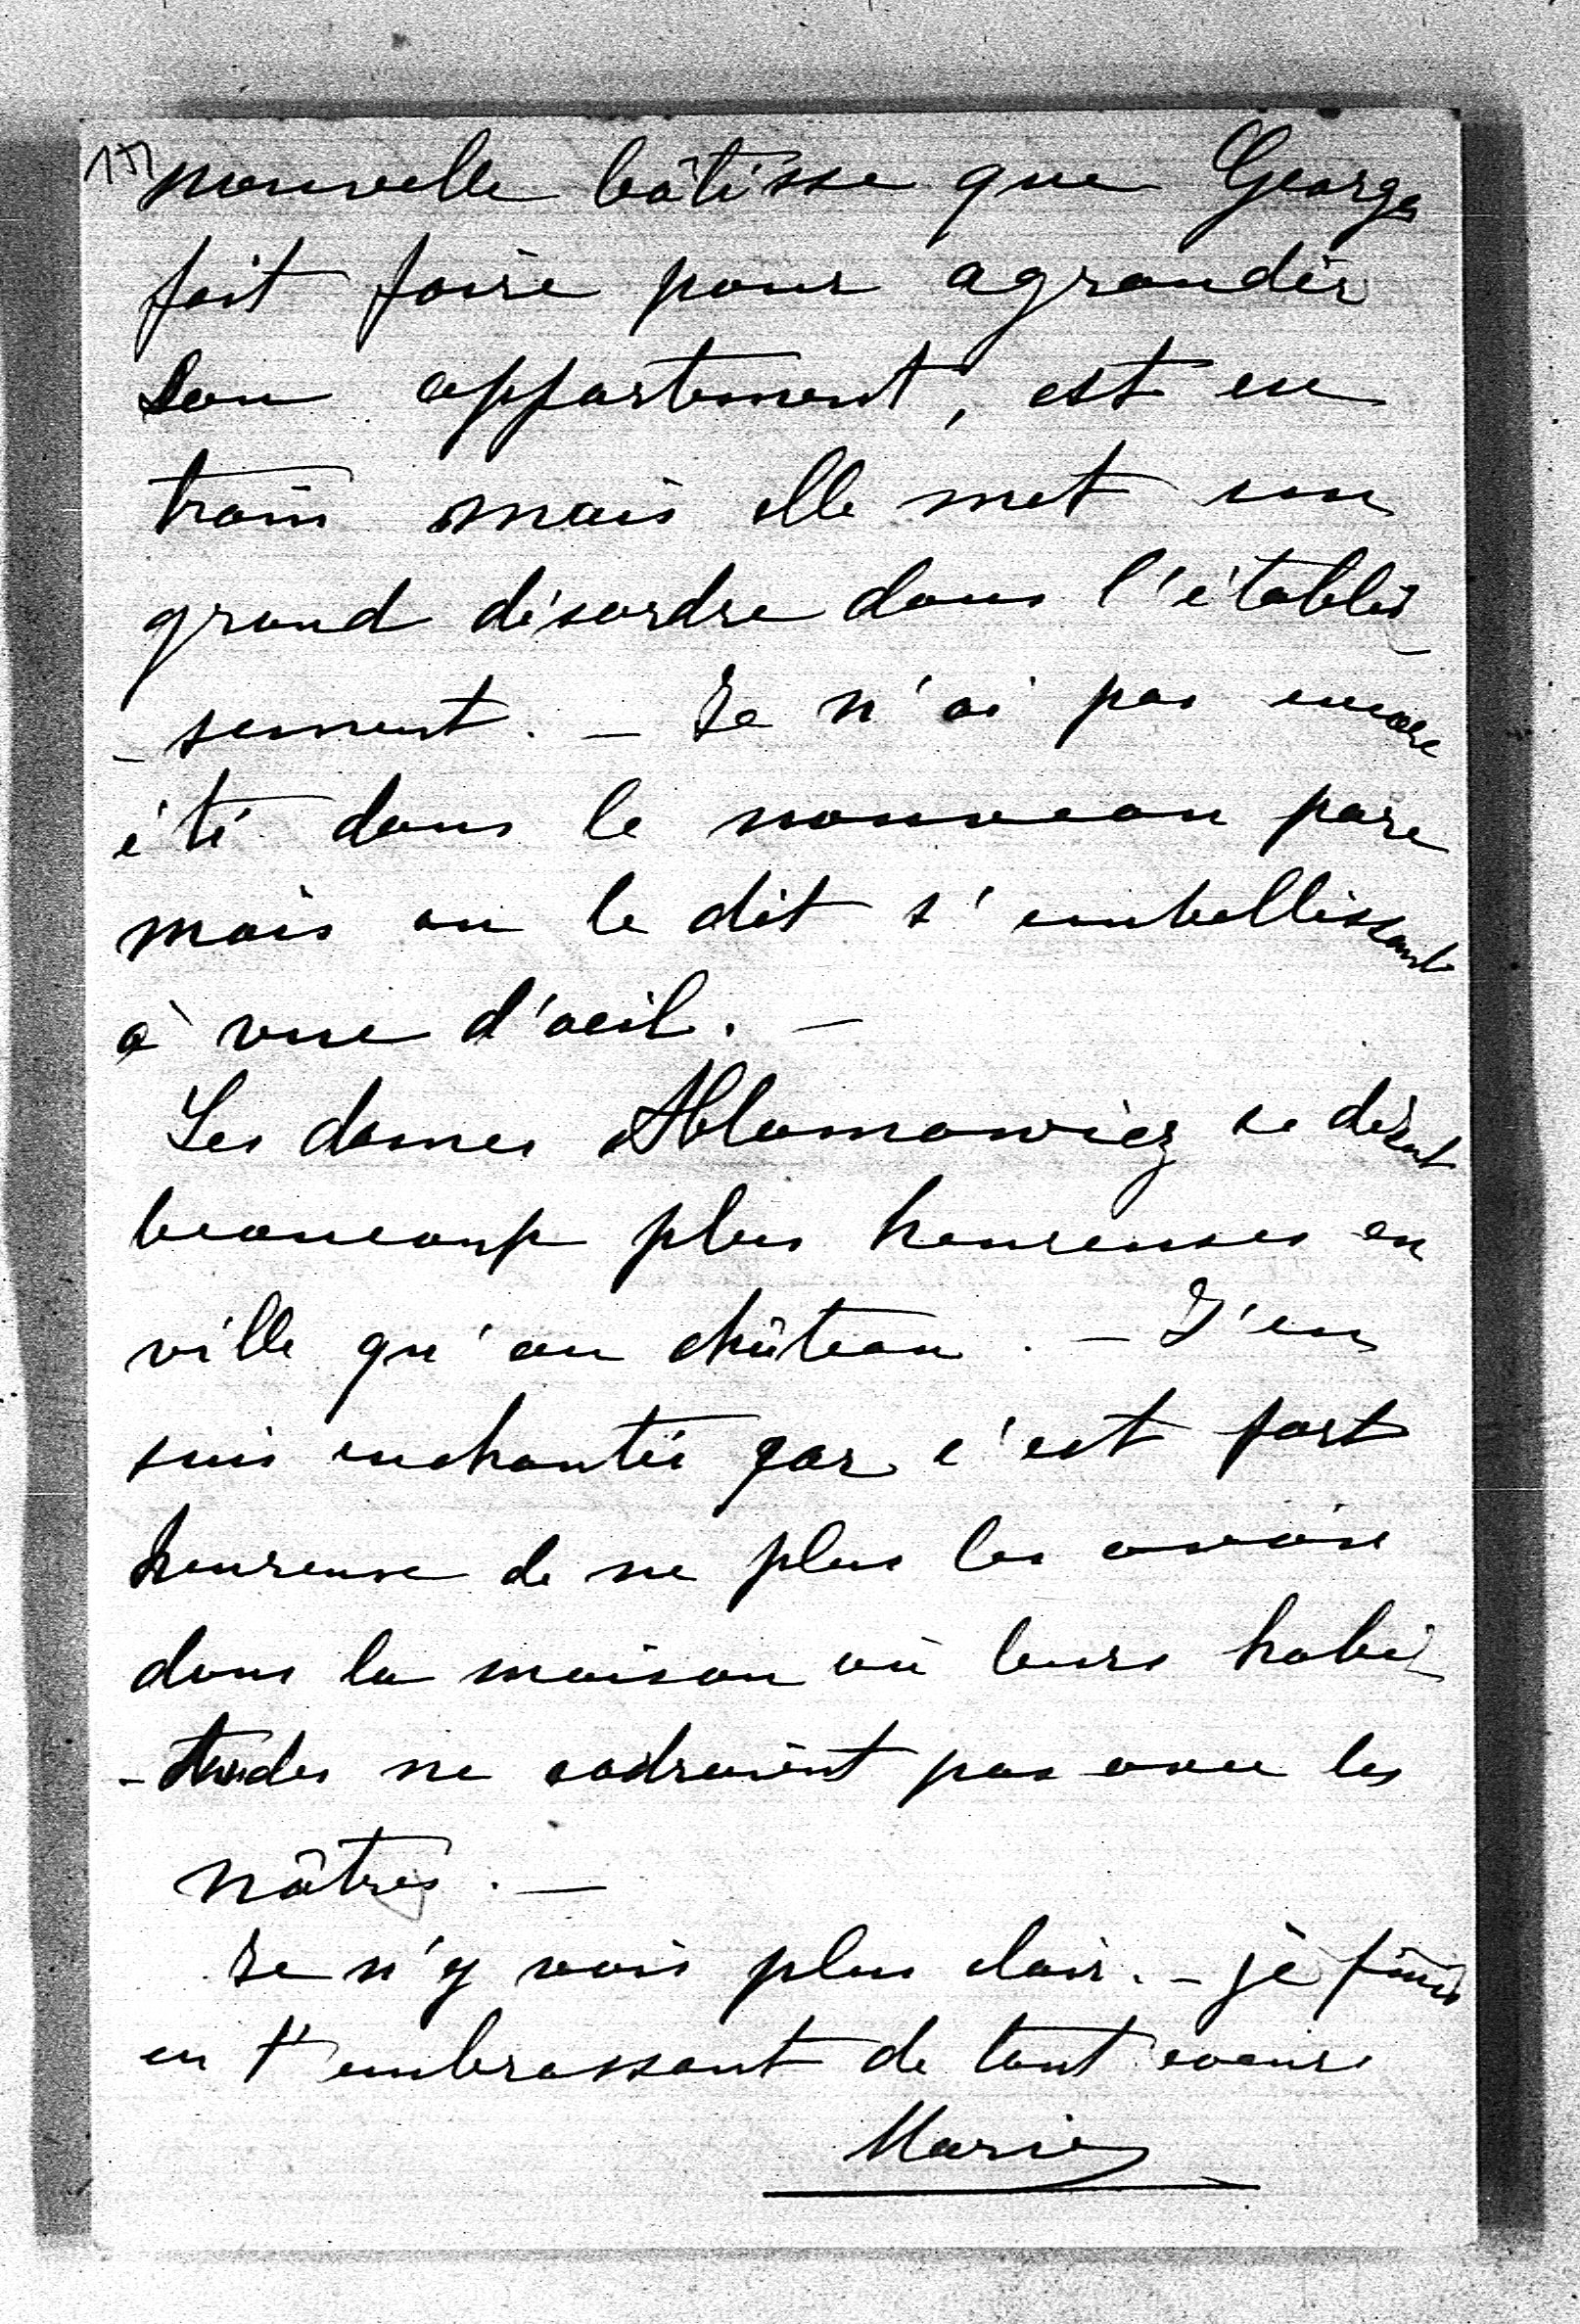 nouvelle bâtisse que Georges
fait faire pour agrandir
son appartement, est en
train mais elle met un
grand désordre dans l'établis
-sement. - Je n'ai pas encore
été dans le nouveau parc
mais on le dit s'embellissant
à vue d'oeil. -
Les dames Ablamowicz se disent
beaucoup plus heureuses en
ville qu'au château. - J'en
suis enchantée car c'est fort
heureuse de ne plus les avoir
dans la maison où leurs habi
-tudes ne cadraient pas avec les
nôtres. -
Je n'y vois plus clair. - je finis
en t'embrassant de tout coeur
Marie